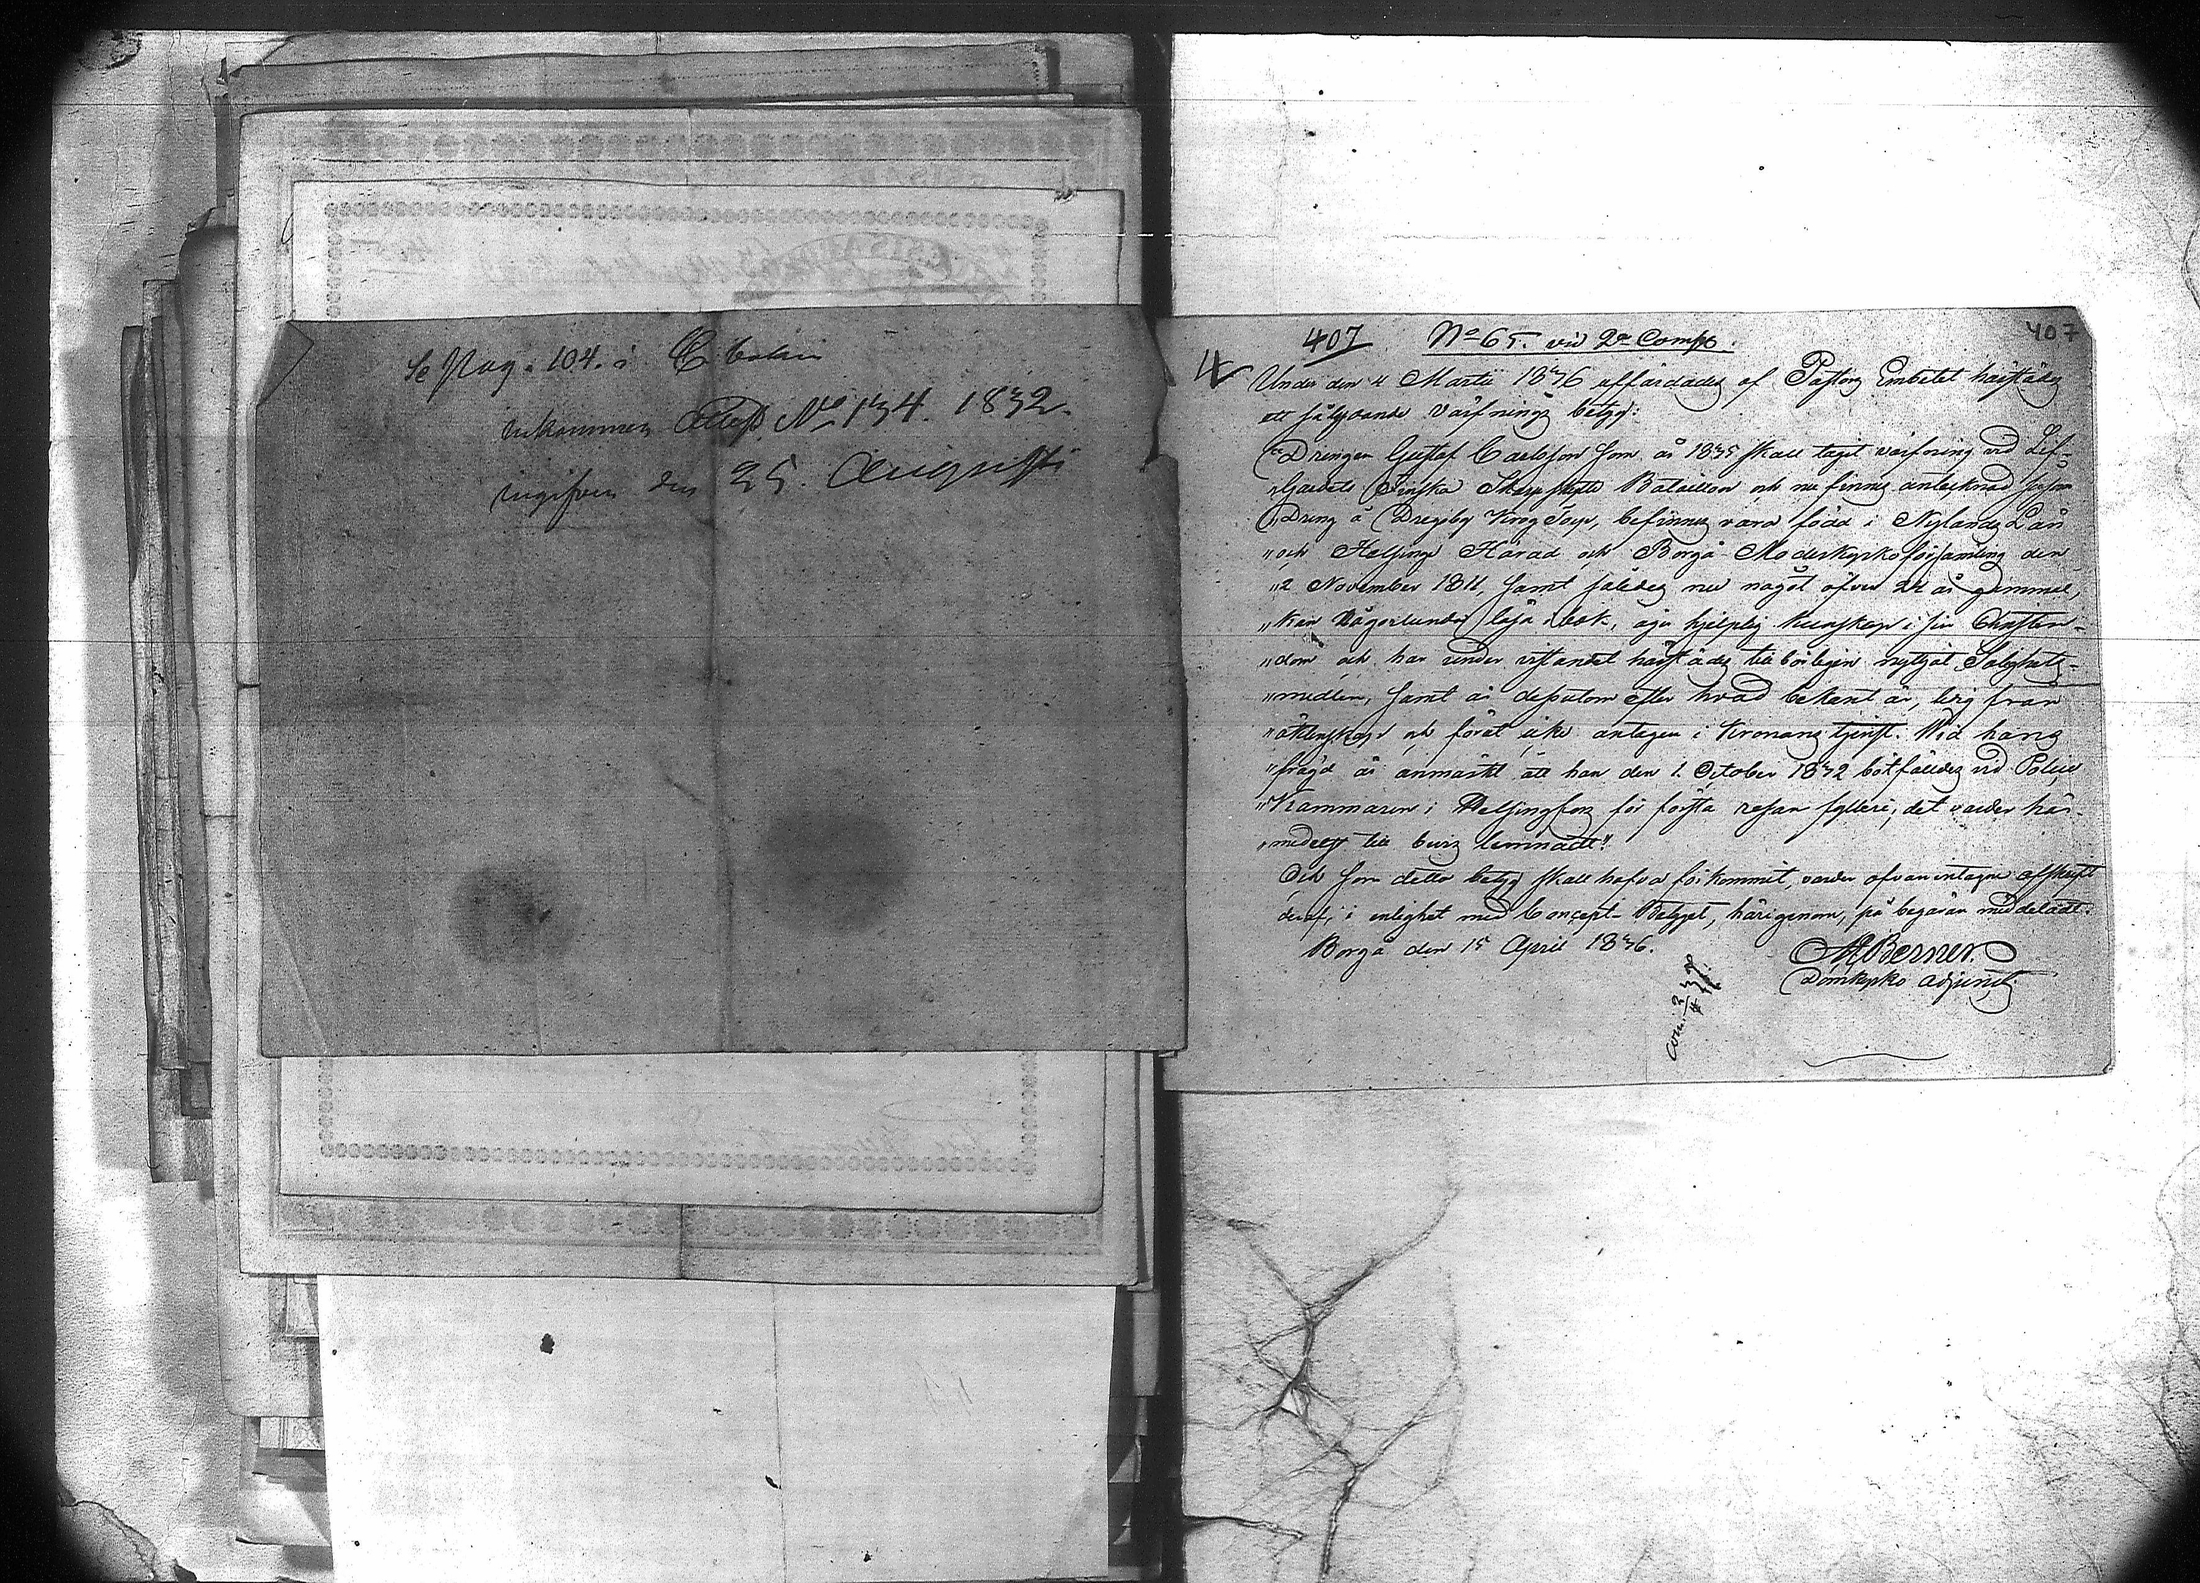 Se Pag. 104. i
inkommen Attest No 134. 1832.
ingifven den 25. Augusti
407 No 65. vid 2a Comp. 407
Under den 4 Martii 1836 utfärdades af Pastors Embetet härstädes
ett följande värfnings betyg:
"Drengen Gustaf Carlsson som år 1835 skall tagit värfning vid Lif-
"Gardets Finska Skarpskytte Bataillon och nu finnes antecknad såsom
"Dreng å Drägsby Krog Torp, befinnes vara född i Nylands Län
"och Helsinge Härad och Borgå Moderkyrkoförsamling den
"2 November 1811, samt således nu något öfver 24 år gammal,
"kan någorlunda läsa i bok, äger hjelplig kunskap i sin Christen-
"dom och har under vistandet härstädes tillbörligen nyttjat Salighets-
"medlen, samt är dessutom efter hvad bekant är, ledig från
"äktenskap och förut icke antagen i Kronans tjenst. Vid hans
"frägd är anmärkt att han den 1. October 1832 bötfälldes vid Police
"Kammaren i Helsingfors för första resan fylleri, det varder här-
"medelst till bevis lemnadt."
Och som detta betyg skall hafva förkommit, varder ofvanintagne afskrift
deraf, i enlighet med Concept-Betyget, härigenom, på begäran meddeladt.
Borgå den 15 April 1836.
Berner.
Domkyrko adjunct.